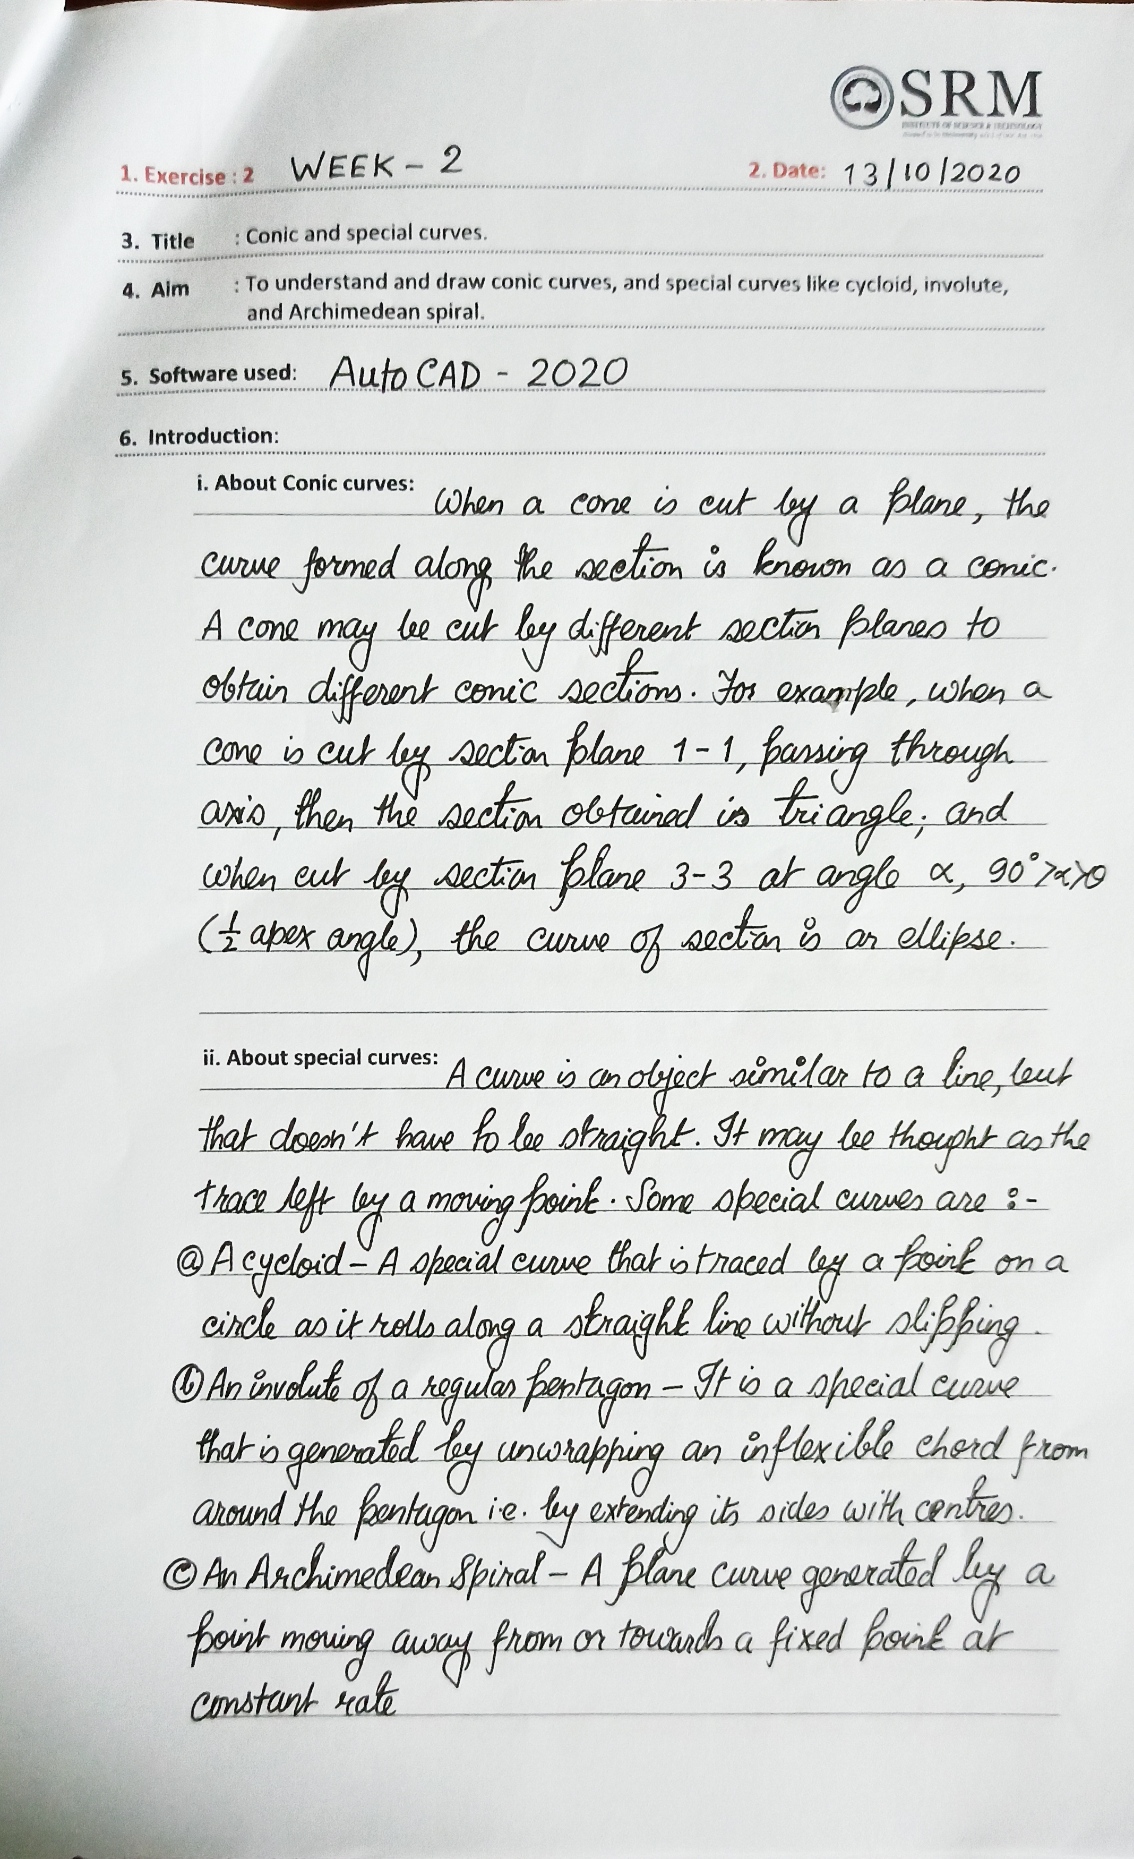 SRM
INSTITUTE OF SCIENCE & TECHNOLOGY
1. Exercise : 2 WEEK - 2 2. Date: 13/10/2020
3. Title : Conic and special curves.
4. Aim : To understand and draw conic curves, and special curves like cycloid, involute,
and Archimedean spiral.
5. Software used: AutoCAD - 2020
6. Introduction:
i. About Conic curves: When a cone is cut by a plane, the
curve formed along the section is known as a conic.
A cone may be cut by different section planes to
obtain different conic sections. For example, when a
cone is cut by section plane 1-1, passing through
axis, then the section obtained is triangle; and
when cut by section plane 3-3 at angle α, 90°>α>θ
(½ apex angle), the curve of section is an ellipse.
ii. About special curves: A curve is an object similar to a line, but
that doesn't have to be straight. It may be thought as the
trace left by a moving point. Some special curves are :-
ⓐ A cycloid - A special curve that is traced by a point on a
circle as it rolls along a straight line without slipping.
ⓑ An involute of a regular pentagon - It is a special curve
that is generated by unwrapping an inflexible chord from
around the pentagon i.e. by extending its sides with centres.
ⓒ An Archimedean Spiral - A plane curve generated by a
point moving away from or towards a fixed point at
constant rate